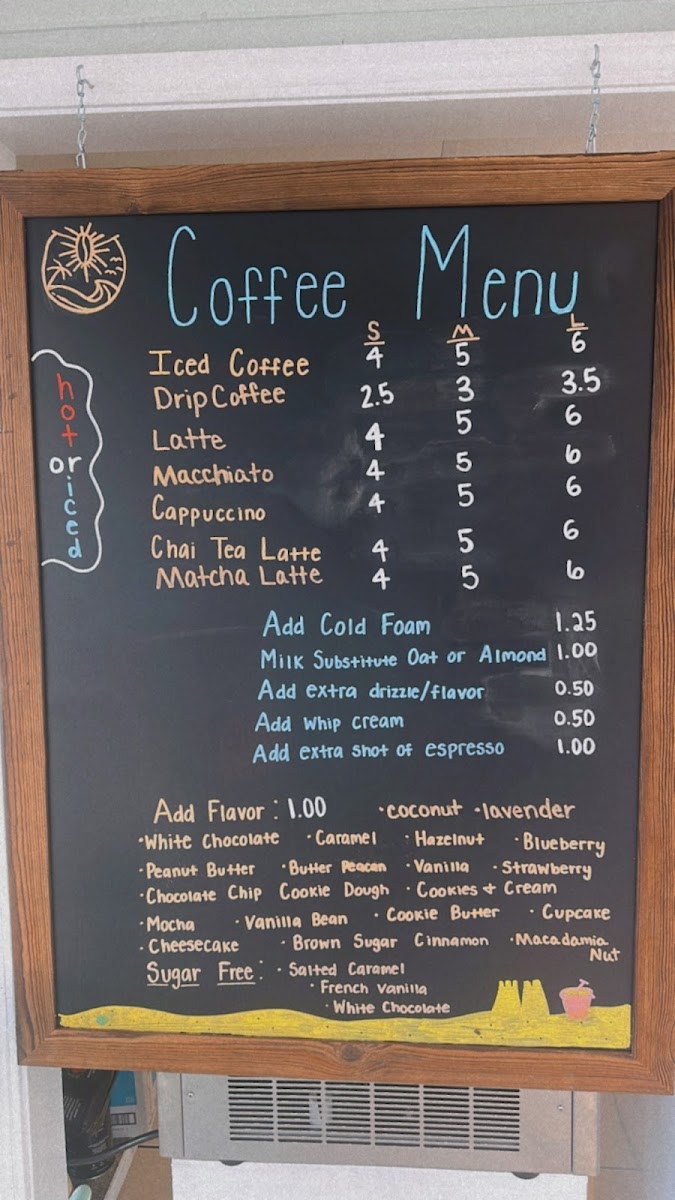 Coffee Menu
S M L
Iced Coffee 4 5 6
Drip Coffee 2.5 3 3.5
Latte 4 5 6
Macchiato 4 5 6
Cappuccino 4 5 6
Chai Tea Latte 4 5 6
Matcha Latte 4 5 6
hot
or
iced
Add Cold Foam 1.25
Milk Substitute Oat or Almond 1.00
Add extra drizzle/flavor 0.50
Add whip cream 0.50
Add extra shot of espresso 1.00
Add Flavor: 1.00 •coconut •lavender
•White Chocolate •Caramel •Hazelnut •Blueberry
•Peanut Butter •Butter Peacan •Vanilla •Strawberry
•Chocolate Chip Cookie Dough •Cookies & Cream
•Mocha •Vanilla Bean •Cookie Butter •Cupcake
•Cheesecake •Brown Sugar Cinnamon •Macadamia
Nut
Sugar Free: •Salted Caramel
•French Vanilla
•White Chocolate